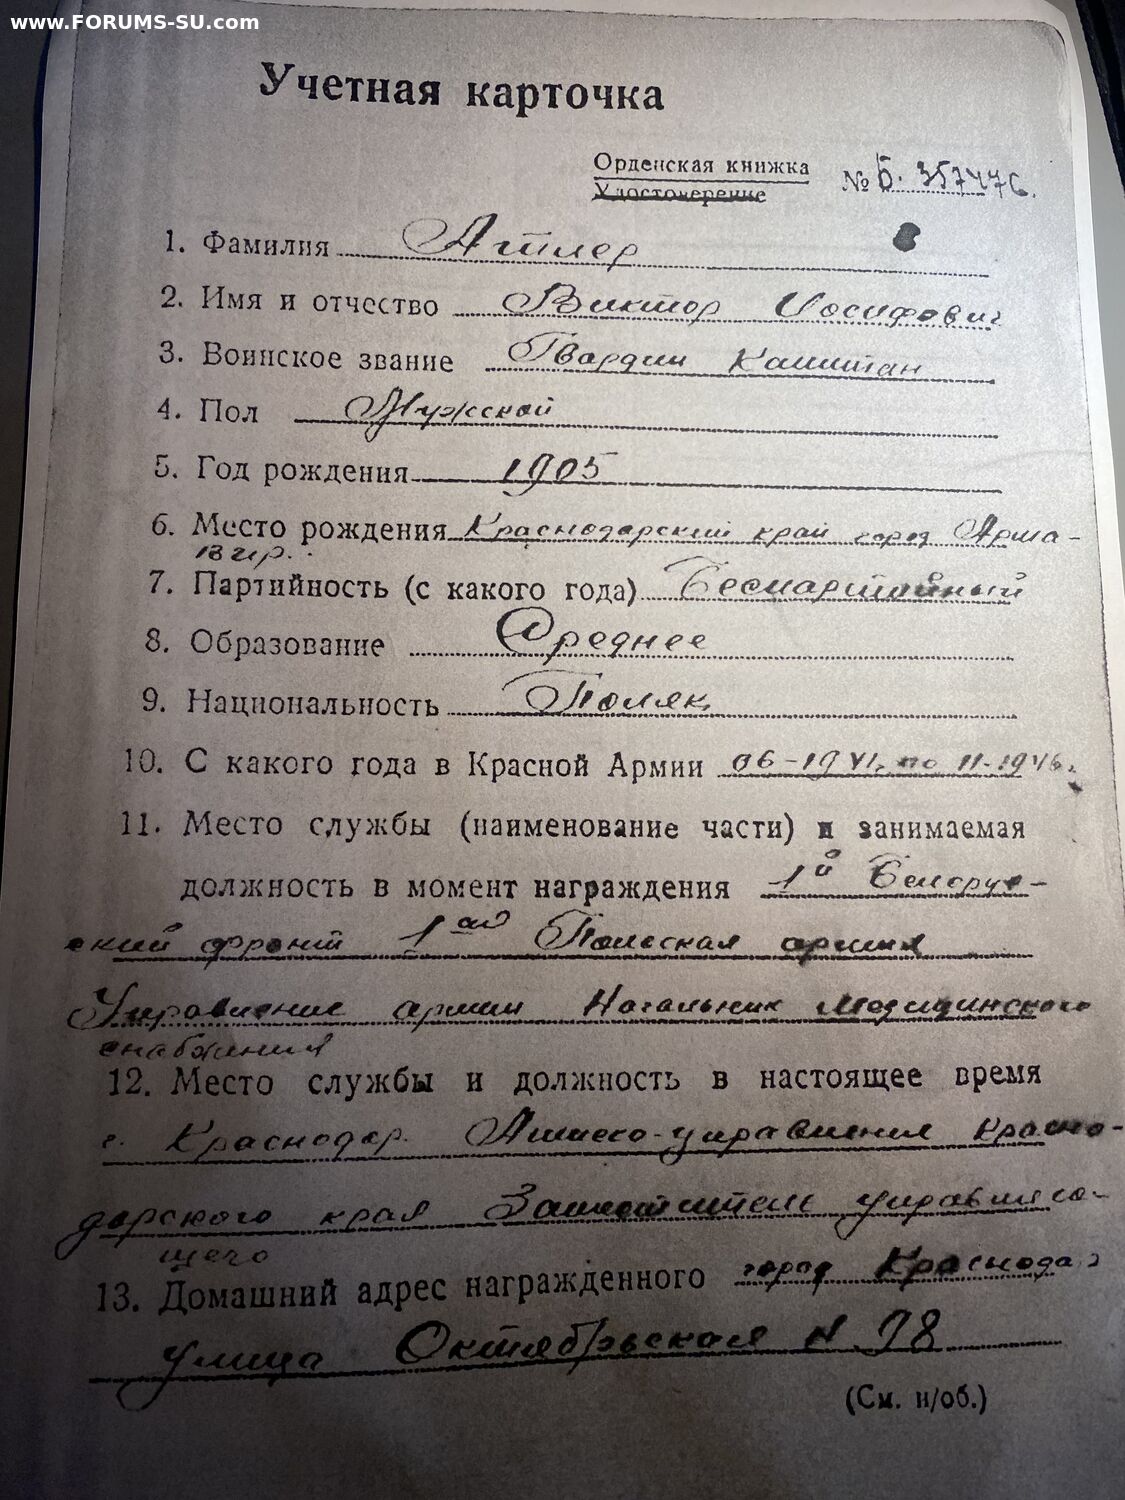 www.FORUMS-SU.com
Учетная карточка
Орденская книжка
Удостоверение
№ Б. 357476.
1. Фамилия Атлер
2. Имя и отчество Виктор Иосифович
3. Воинское звание Гвардии Капитан
4. Пол Мужской
5. Год рождения 1905
6. Место рождения Краснодарский край город Арма-
вир.
7. Партийность (с какого года) Беспартийный
8. Образование Среднее
9. Национальность Поляк
10. С какого года в Красной Армии 06-1941. по 11-1946.
11. Место службы (наименование части) и занимаемая
должность в момент награждения 1й Белорус-
ский фронт 1ая Польская армия
Управление армии Начальник Медицинского
снабжения
12. Место службы и должность в настоящее время
г. Краснодар. управления Красно-
дарского края Заместитель управляю-
щего
13. Домашний адрес награжденного город Краснодар
улица Октябрьская N 78
(См. н/об.)